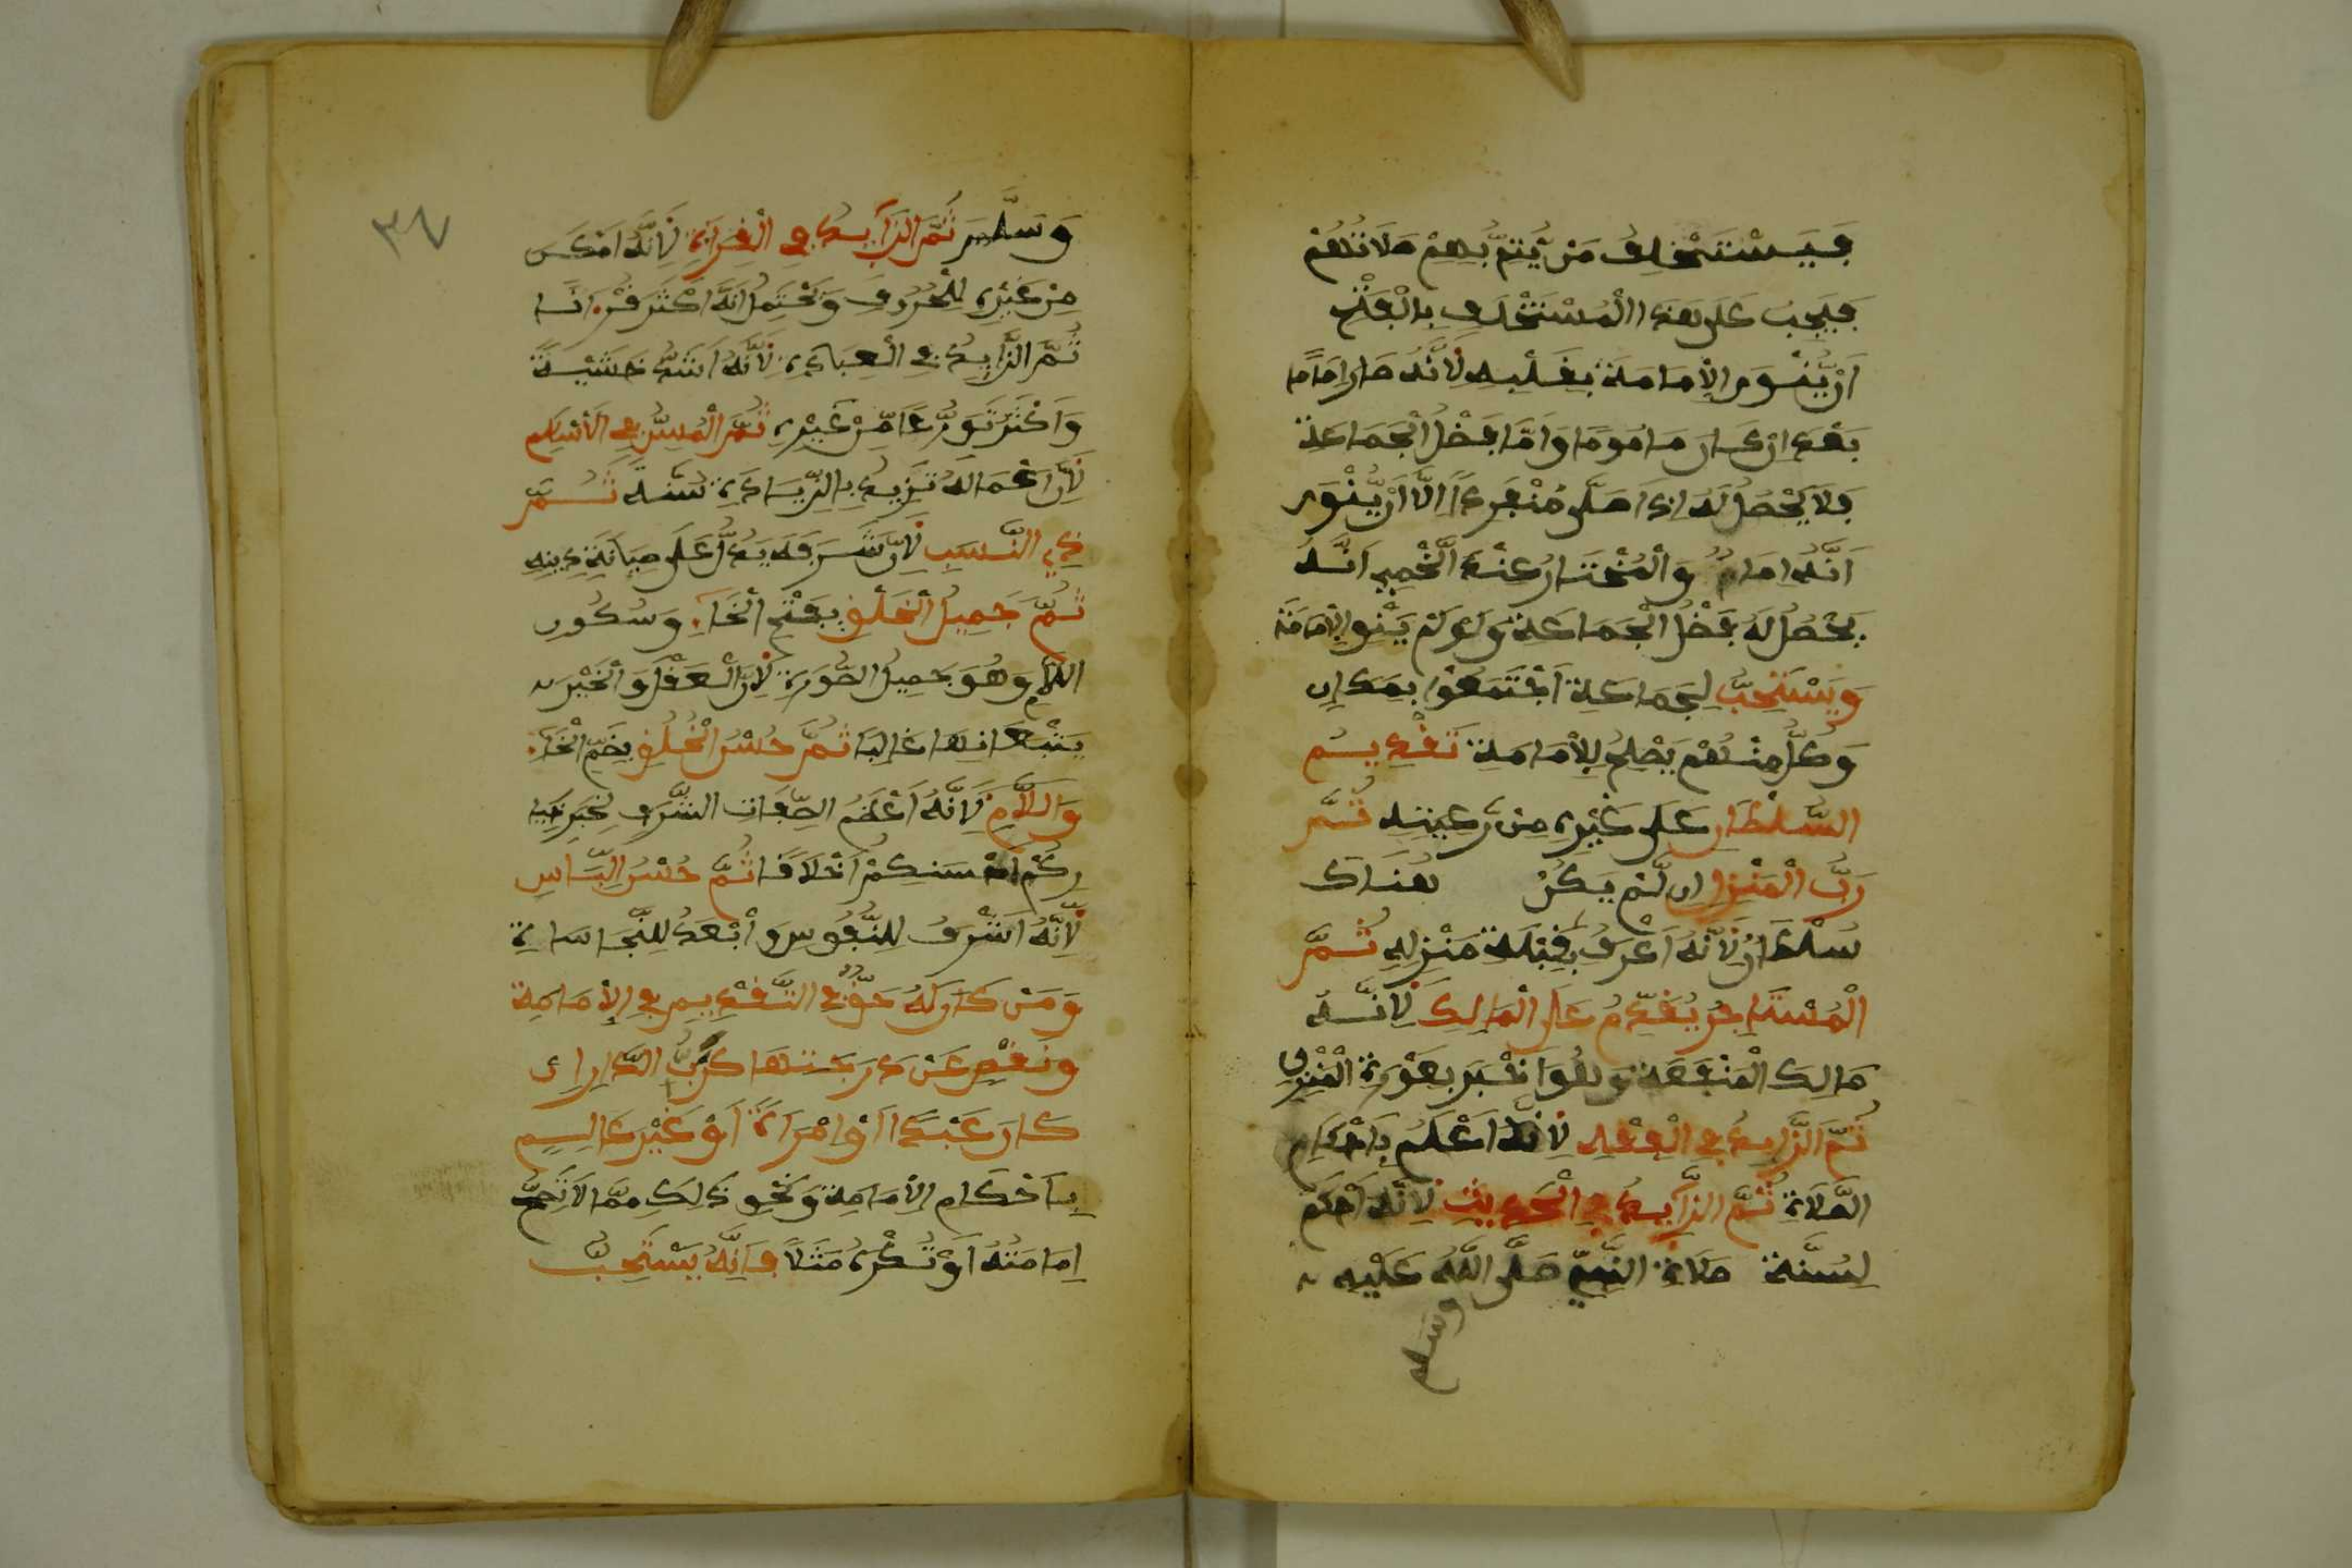 فَيَسْتَخْلِفُ مَنْ يُّتِمُّ بِهِمْ صَلَاتَهُمْ
فَيَجِبُ عَلَى هَذَا الْمُسْتَخْلَفِ بِالْفَتْحِ
أَنْ يَّنْوِيَ الْإِمَامَةَ بِقَلْبِهِ لِأَنَّهُ صَارَ إِمَامًا
بَعْدَ انْ كَانَ مَامُومًا وَأَمَّا فَضْلُ الْجَمَاعَةِ
فَلَا يَحْصُلُ لَهُ إِذَا صَلَّى مُنْفَرِدًا إِلَّا أَنْ يَّنْوِيَ
أَنَّهُ إِمَامٌ وَالْمُخْتَارُ عِنْدَ اللَّخْمِيِ أَنَّهُ
يَحْصُلُ لَهُ فَضْلُ الْجَمَاعَةِ وَلَوْ لَمْ يَنْوِ الْإِمَامَةَ
وَيَسْتَحِبُّ لِجَمَاعَةٍ اجْتَمَعُوا بِمَكَانٍ
وَكُلٌّ مِنْهُمْ يَصْلِحُ لِلْإِمَامَةِ تَقْدِيمُ
السُّلْطَانِ عَلَى غَيْرِهِ مِنْ رَعِيَّتِهِ ثُمَّ
رَبُّ الْمَنْزِلِ إِن لَّمْ يَكُنْ هُنَاكَ
سُلْطَانٌ لِأَنَّهُ أَعْرَفُ بِقِبْلَةِ مَنْزِلِهِ ثُمَّ
الْمُسْتَاجِرُ يُقَدَّمُ عَلَى الْمَالِكِ لِأَنَّهُ
مَالِكُ الْمَنْفَعَةِ وَهُوَ أَخْبَرُ بِعَوْرَةِ الْمَنْزِلِ
ثُمَّ الزَّايِدُ فِي الْفِقْهِ لِأَنَّهُ أَعْلَمُ بِأَحْكَامِ
الصَّلَاةِ ثُمَّ الزَّايِدُ فِي الْحَدِيثِ لِأَنَّهُ أَحْكَمُ
لِسُنَّةِ صَلَاةِ النَّبِيِّ صَلَّى اللَّهُ عَلَيْهِ
وسلم
٣٧
وَسَلَّمَ ثُمَّ الزَّايِدُ فِي الْقِرَاءَةِ لِأَنَّهُ أَمْكَنُ
مِنْ غَيْرِهِ لِلْحُرُوفِ وَيَحْتَمِلُ أَنَّهُ أَكْثَرُ قُرْءَانًا
ثُمَّ الزَّايِدُ فِي الْعِبَادَةِ لِأَنَّهُ أَشَدُّ خَشْيَةً
وَأَكْثَرُ تَوَرُّعًا مِّنْ غَيْرِهِ ثُمَّ الْمُسِنُّ فِي الْأَسْلَامِ
لِأَنَّ أَعْمَالَهُ تَزِيدُ بِالزِّيَادَةِ سُنَّةً ثُمَّ
ذِي النَّسَبِ لِأَنَّ شَرَفَهُ يَدُلُّ عَلَى صِيَانَةِ دِينِهِ
ثُمَّ جَمِيلُ الْخَلْقِ بِفَتْحِ الْخَاءِ وَسُكُونِ
اللَّامِ وَهُوَ جَمِيلُ الصُّورَةِ لِأَنَّ الْعَقْلَ وَالْخَيْرَ
يَتْبَعَانِهَا غَالِبًا ثُمَّ حُسْنُ الْخُلُقِ بِضَمِّ الْخَاءِ
وَاللَّامِ لِأَنَّهُ أَعْظَمُ الصِّفَاتِ الشَّرَفِ لِخَبَرِ خِيَا
رِكُمْ أَحْسَنِكُمْ أَخْلَاقًا ثُمَّ حُسْنُ اللِّبَاسِ
لِأَنَّهُ أَشْرَفُ لِلنُّفُوسِ وَأَبْعَدُ لِلنَّجَاسَاةِ
وَمَنْ كَانَ لَهُ حَقٌّ فِي التَّقْدِيمِ فِي الْإِمَامَةِ
وَنَقُصَ عَنْ دَرَجَتِهَا كَرَبُّ الدَّارِ إِن
كَانَ عَبْدًا أَوْ امْرَأَةً أَوْ غَيْرَ عَالِمٍ
بِأَحْكَامِ الْإِمَامَةِ وَنَحْوِ ذَلِكَ مِمَّا لَا تَصِحُّ
إِمَامَتُهُ أَوْ تُكْرَهُ مَثَلًا فَإِنَّهُ يَسْتَحِبُّ